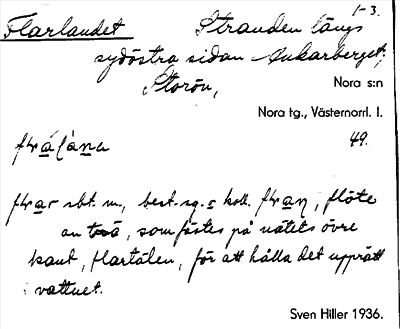 1-3.
Flarlandet Stranden längs
sydöstra sidan Ankarberget,
Storön,
Nora s:n
Nora tg., Västernorrl. l.
49.
sbt. m., best. sg. = koll. flöte
an trä, som fästes på nätets övre
kant, flartälen, för att hålla det upprätt
i vattnet.
Sven Hiller 1936.